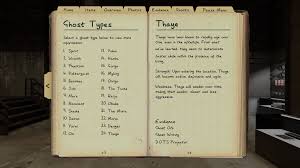 Home
Items
Overview
Photos
Evidence
Ghosts
Pause Menu
Ghost Types
Select a ghost type below to see more
information
1. Spirit
2. Wraith
3. Phantom
4. Poltergeist
5. Banshee
6. Jinn
7. Mare
8. Revenant
9. Shade
10. Demon
11. Yurei
12. Oni
13. Yokai
14. Hantu
15. Goryo
16. Myling
17. Onryo
18. The Twins
19. Raiju
20. Obake
21. The Mimic
22. Moroi
23. Deogen
24. Thaye
Thaye
Thaye have been known to rapidly age over
time, even in the afterlife. From what
we've learned, they seem to deteriorate
faster while within the presence of the
living.
Strength: Upon entering the location, Thaye
will become active, defensive and agile.
Weakness: Thaye will weaken over time,
making them weaker, slower and less
aggressive.
Evidence
Ghost Orb
Ghost Writing
D.O.T.S Projector